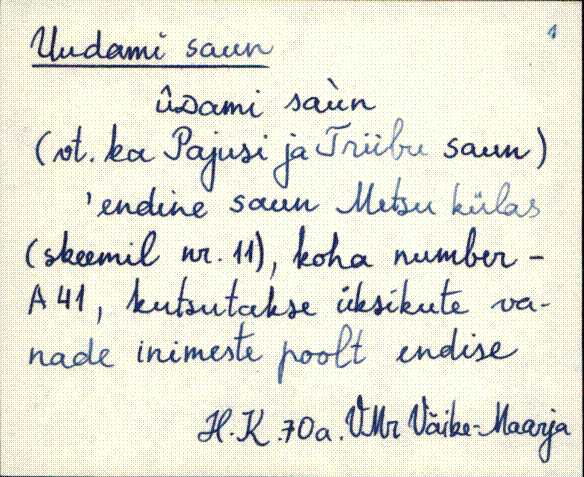 1
Uudami saun
ûᴅami saùn
(vt. ka Pajusi ja Triibu saun)
'endine saun Metsu külas
(skeemil nr. 11), koha number -
A 41, kutsutakse üksikute va-
nade inimeste poolt endise
H.K. 70a. VMr Väike-Maarja